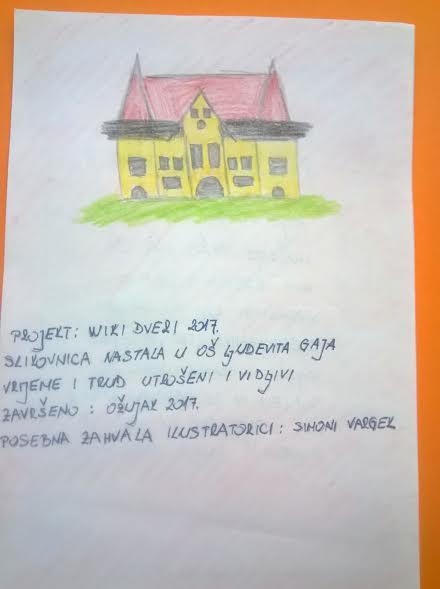 PROJEKT: WIKI DVERI 2017.
SLIKOVNICA NASTALA U OŠ LJUDEVITA GAJA
VRIJEME I TRUD UTROŠENI I VIDLJIVI
ZAVRŠENO: OŽUJAK 2017.
POSEBNA ZAHVALA ILUSTRATORICI: SIMONI VARGEK